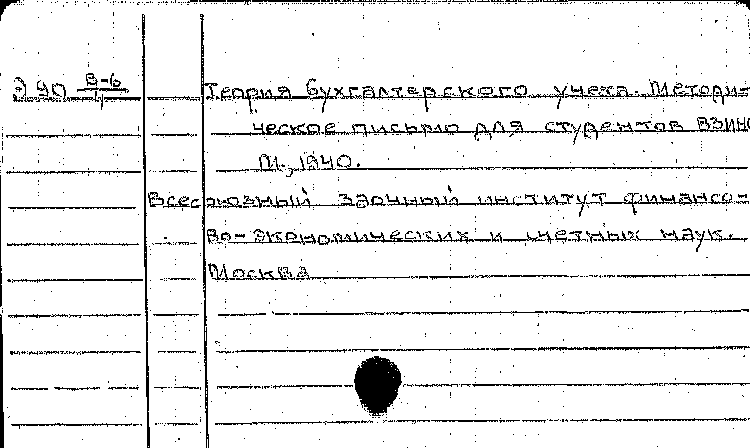 Э 90 В-6/4 Теория бухгалтерского учета. Методи-
ческое письмо для студентов ВЗИНО
М., 1940.
Всесоюзный заочный институт финансо-
во-экономических и учетных наук.
Москва